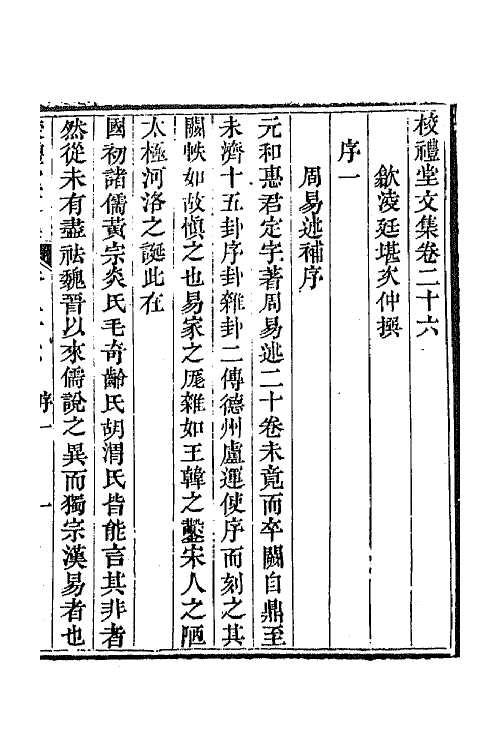 校禮堂文集卷二十六
歙淩廷堪次仲撰
序一
周易述補序
元和惠君定宇著周易述二十卷未竟而卒闕自鼎至
未濟十五卦序卦雜卦二傳德州盧運使序而刻之其
闕帙如故慎之也易家之厖雜如王韓之鑿宋人之陋
太極河洛之誕此在
國初諸儒黃宗炎氏毛奇齡氏胡渭氏皆能言其非者
然從未有盡祛魏晉以來儒說之異而獨宗漢易者也
序一
一